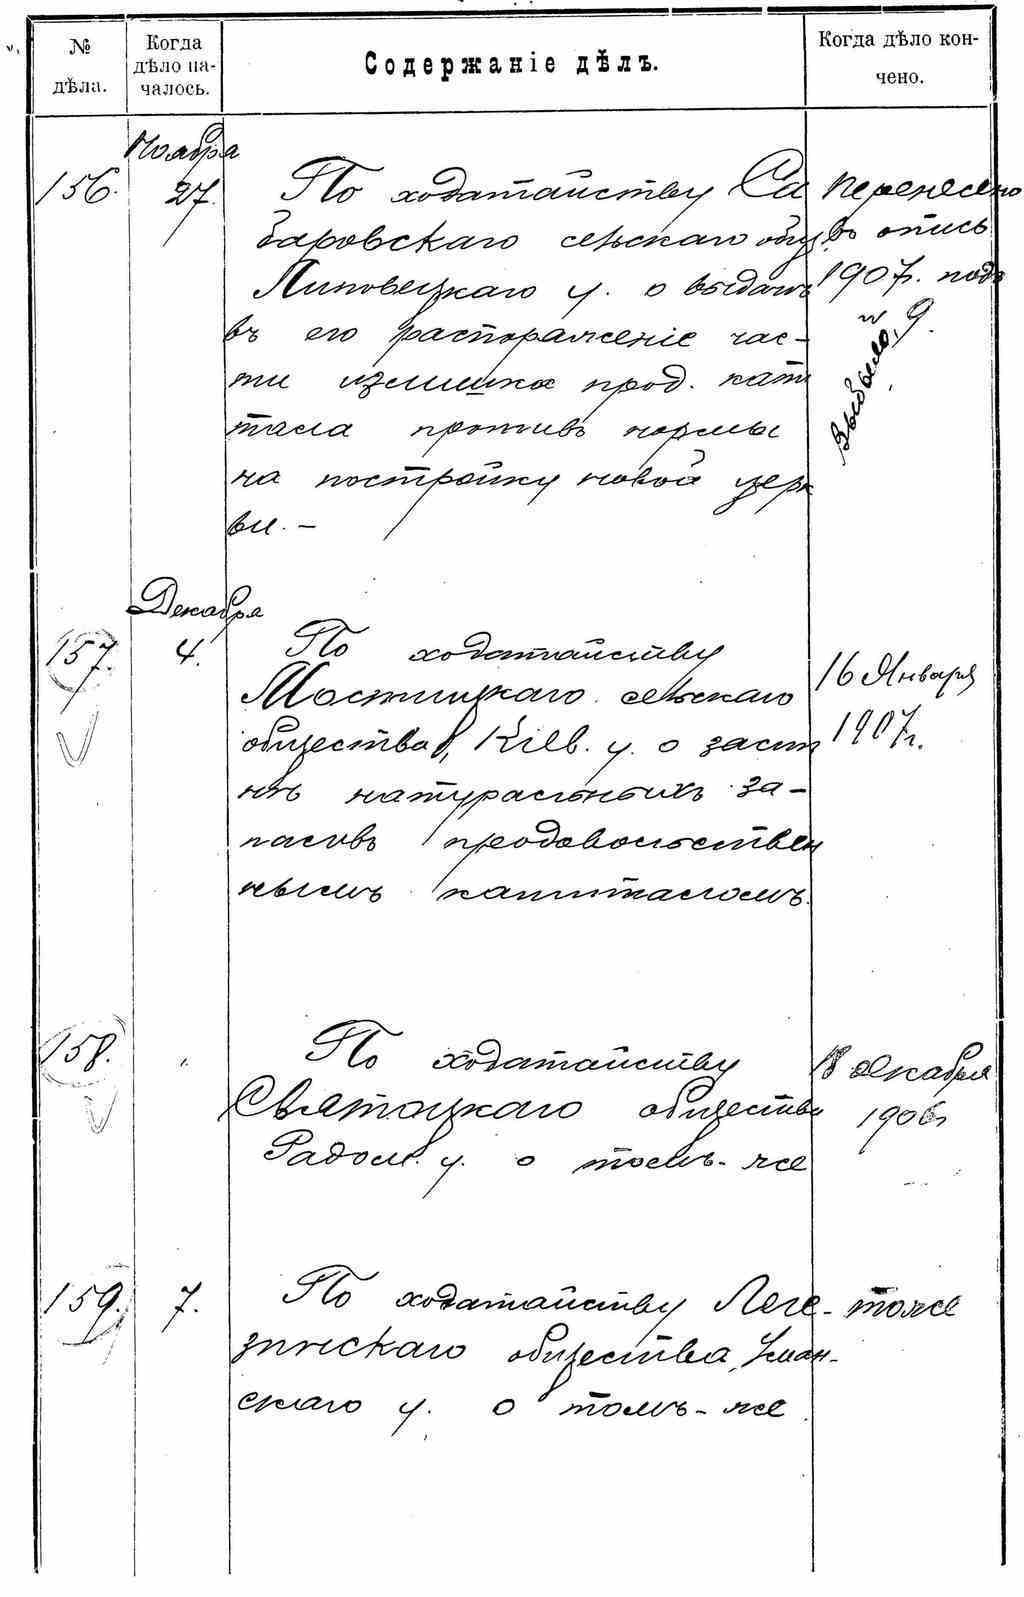 № дѣла.
Когда дѣло на-
чалось.
Содержаніе дѣлъ.
Когда дѣло кон-
чено.
Ноября
156. 27. По ходатайству Са
баровскаго сельскаго общ.
Липовецкаго у. о выдачѣ
въ его распоряженіе час-
ти излишка прод. капи
тала противъ нормы
на постройку новой церк
ви. –
Перенесено
въ опись
1907г. подъ
№ 9.
Выбыло
Декабря
157. 4. По ходатайству
Мостищкаго сельскаго
общества, Кіев. у. о замѣ
нѣ натуральныхъ за-
пасовъ продовольствен
нымъ капиталомъ.
16 Января
1907г.
158. " По ходатайству
Святоцкаго общества
Радом. у. о томъ-же
18 декабря
1906г
159. 7. По ходатайству Леге-
зинскаго общества, Уман-
скаго у. о томъ-же
тоже